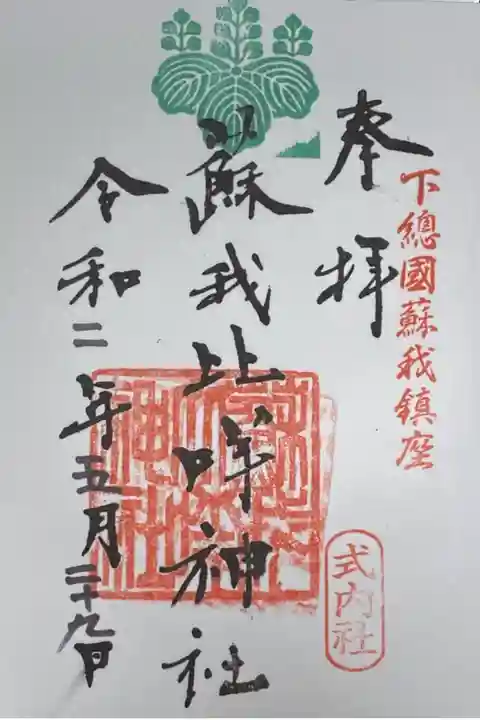 下總國蘇我鎮座
式内社
奉拝
蘇我比咩神社
令和二年五月二十九日